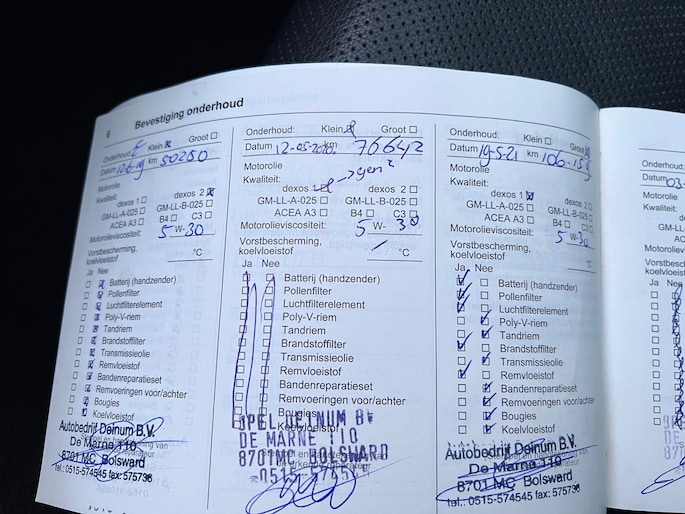 6 Bevestiging onderhoud
Onderhoud: Klein Groot
Datum km 50280
Motorolie
Kwaliteit:
dexos 1 dexos 2
GM-LL-A-025 GM-LL-B-025
ACEA A3 B4 C3
Motorolieviscositeit: 5 W-30
Vorstbescherming,
koelvloeistof °C
Ja Nee
Batterij (handzender)
Pollenfilter
Luchtfilterelement
Poly-V-riem
Tandriem
Brandstoffilter
Transmissieolie
Remvloeistof
Bandenreparatieset
Remvoeringen voor/achter
Bougies
Koelvloeistof
Autobedrijf Deinum B.V.
De Marne 110
8701 MC Bolsward
tel.: 0515-574545 fax: 575736
Onderhoud: Klein Groot
Datum 12-05-2020. km 76642
Motorolie
Kwaliteit:
dexos 1 dexos 2
GM-LL-A-025 GM-LL-B-025
ACEA A3 B4 C3
Motorolieviscositeit: 5 W- 30
Vorstbescherming,
koelvloeistof °C
Ja Nee
Batterij (handzender)
Pollenfilter
Luchtfilterelement
Poly-V-riem
Tandriem
Brandstoffilter
Transmissieolie
Remvloeistof
Bandenreparatieset
Remvoeringen voor/achter
Bougies
Koelvloeistof
OPEL DEINUM BV
DE MARNE 110
8701MC BOLSWARD
Onderhoud: Klein Groot
Datum 19-5-21 km
Motorolie
Kwaliteit:
dexos 1 dexos 2
GM-LL-A-025 GM-LL-B-025
ACEA A3 B4 C3
Motorolieviscositeit: 5 W-30
Vorstbescherming,
koelvloeistof °C
Ja Nee
Batterij (handzender)
Pollenfilter
Luchtfilterelement
Poly-V-riem
Tandriem
Brandstoffilter
Transmissieolie
Remvloeistof
Bandenreparatieset
Remvoeringen voor/achter
Bougies
Koelvloeistof
Autobedrijf Deinum B.V.
De Marne 110
8701 MC Bolsward
tel.: 0515-574545 fax: 575736
Onderhoud:
Datum 03-
Motorolie
Kwaliteit:
Vorstbescherming
koelvloeistof
Ja Nee